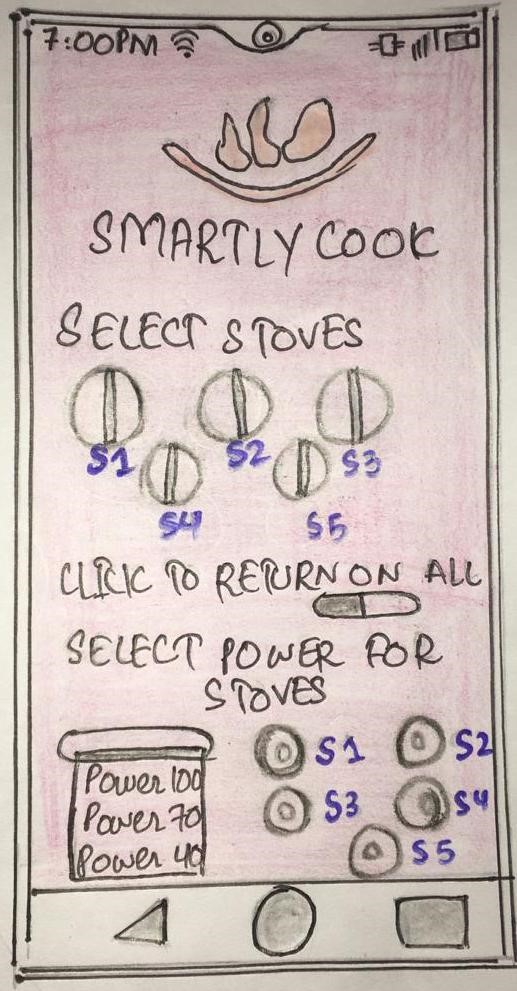 7:00PM
SMARTLY COOK
SELECT STOVES
S1 S2 S3
S4 S5
CLICK TO RETURN ON ALL
SELECT POWER FOR
STOVES
Power 100 S1 S2
Power 70 S3 S4
Power 40 S5